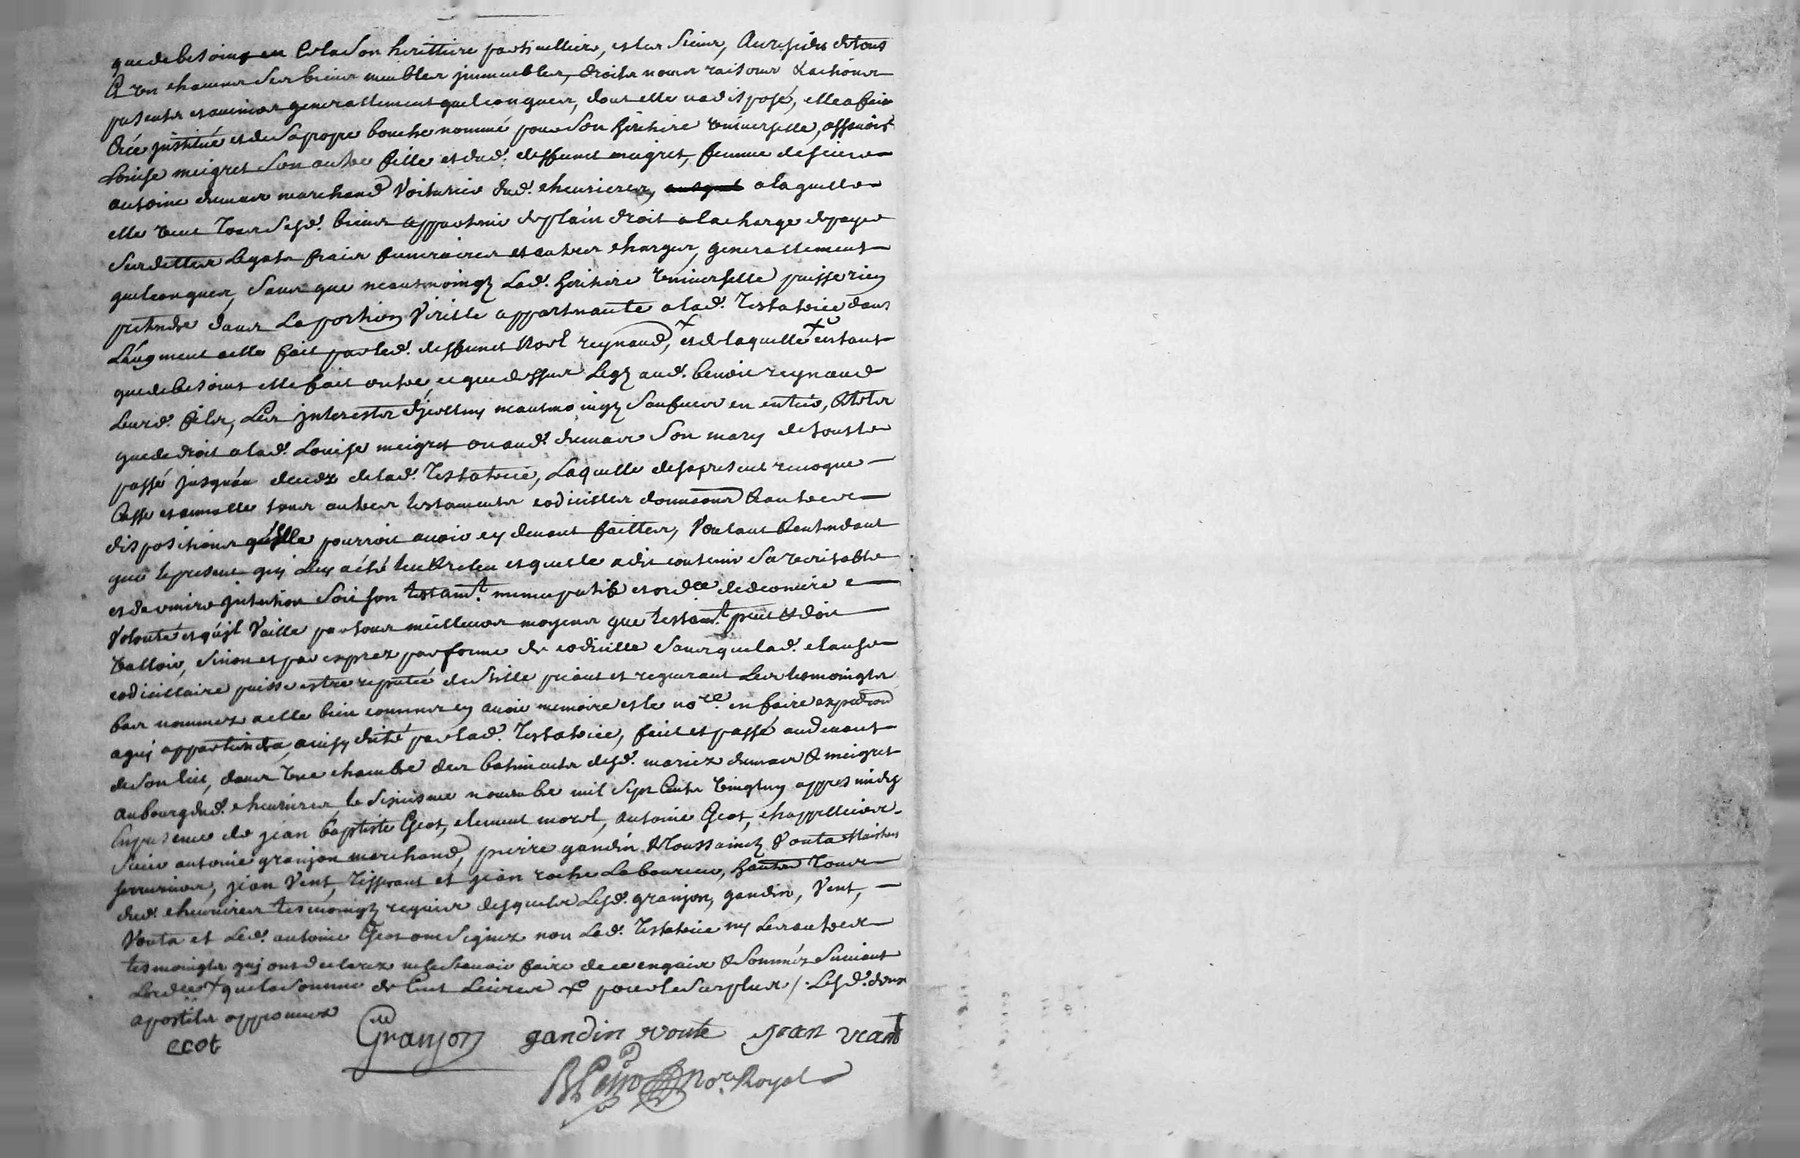 que de besoing en cela son heritiere particulliere, et les siens, au residu de tous
& un chacuns ses biens meubles jmmeubles, droits noms raisons & actions
presents et avenirs generallement quelconques, dont elle n'a disposé, elle a fait
créé jnstitué et de sa propre bouche nommé pour son heritiere universelle, assavoir
Louise meigret son autre fille et dud. deffunct meigret, femme de sieur
antoine dumas marchand voiturier dud. chevrieres, a laquelle
elle veut tous sesd. biens appartenir de plain droit a la charge de payer
ses dettes legats fraix funeraires et autres charges, generallement
quelconques, sans que neantmoingts lad. heritiere universelle puisse rien
pretendre dans la portion virille appartenante a lad. testatrice dans
l'augment a elle fait par led. deffunct reynaud, + et de laquelle + en tant
que de besoins elle fait outre ce que dessus legs aud. benoit reynaud
leurd. fils, les interests d'jcelluy neantmoingts en entier, & tels
que de droit a lad. Louise meigret ou aud. dumas son mary de tout le
passé jusqu'au deceds de lad. testatrice, laquelle des a present revoque
casse et annulle tous autres testaments codicilles donnaons & autres
dispositions qu'elle pourroit avoir cy devant faittes, voulant & entendant
que le present qui luy a été leu & releu et quelle a dit contenir sa veritable
et derniere jntention soit son testamt. nuncupatif et ordce. de derniere
volonté et qu'jl vaille par tous meilleurs moyens que testamt. peut & doit
valloir, sinon et par exprez par forme de codicille sans que lad. clause
codicillaire puisse estre reputée de stille priant et requerant les tesmoingts
bas nommez a elle bien connus en avoir memoire et le nore. en faire expedion
a qui appartiendra, ainsy dicté par lad. testatrice, fait et passé au devant
de son lict, dans une chambre des batiments desd. mariez dumas & meigret
au bourg dud. chevrieres le sixiesme novembre mil sept cents vingt un appres midy
en presence de jean baptiste Crot, clement morel, antoine Crot, chappellier
sieur antoine granjon marchand, pierre gandin & Toussainct vouta maistres
serruriers, jean vent, tisserant et jean roche laboureur, tous
dud. chevrieres tesmoingts requis desquels lesd. granjon, gandin, vent,
vouta et led. antoine Crot ont signez non lad. testatrice ny les autres
tesmoingts quj ont declarez ne scavoir faire de ce enquis & sommés suivant
lordce. + que la somme de cent livres + pour le surplus /. lesd. deux
apostiles approuvez
crot Granjon gandin voute jean veant
nore. Royal